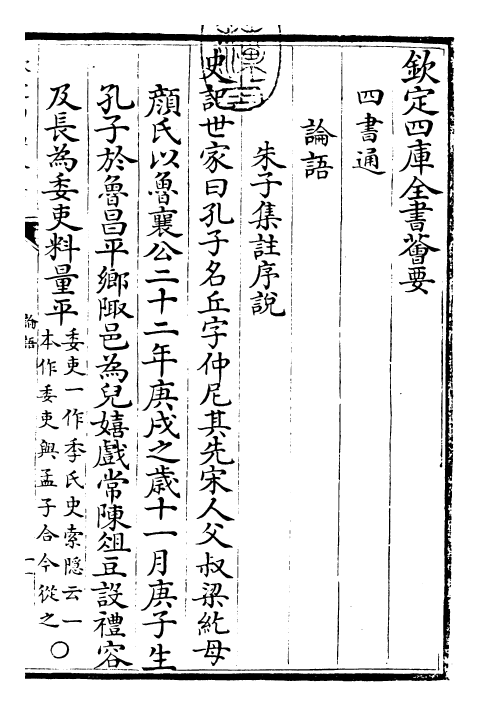 欽定四庫全書薈要
四書通
論語
朱子集註序説
史記世家曰孔子名丘字仲尼其先宋人父叔梁紇母
顔氏以魯襄公二十二年庚戌之歳十一月庚子生
孔子於魯昌平鄉陬邑為兒嬉戲常陳俎豆設禮容
及長為委吏料量平
委吏一作季氏史索隱云一
本作委吏與孟子合今從之
○
論語